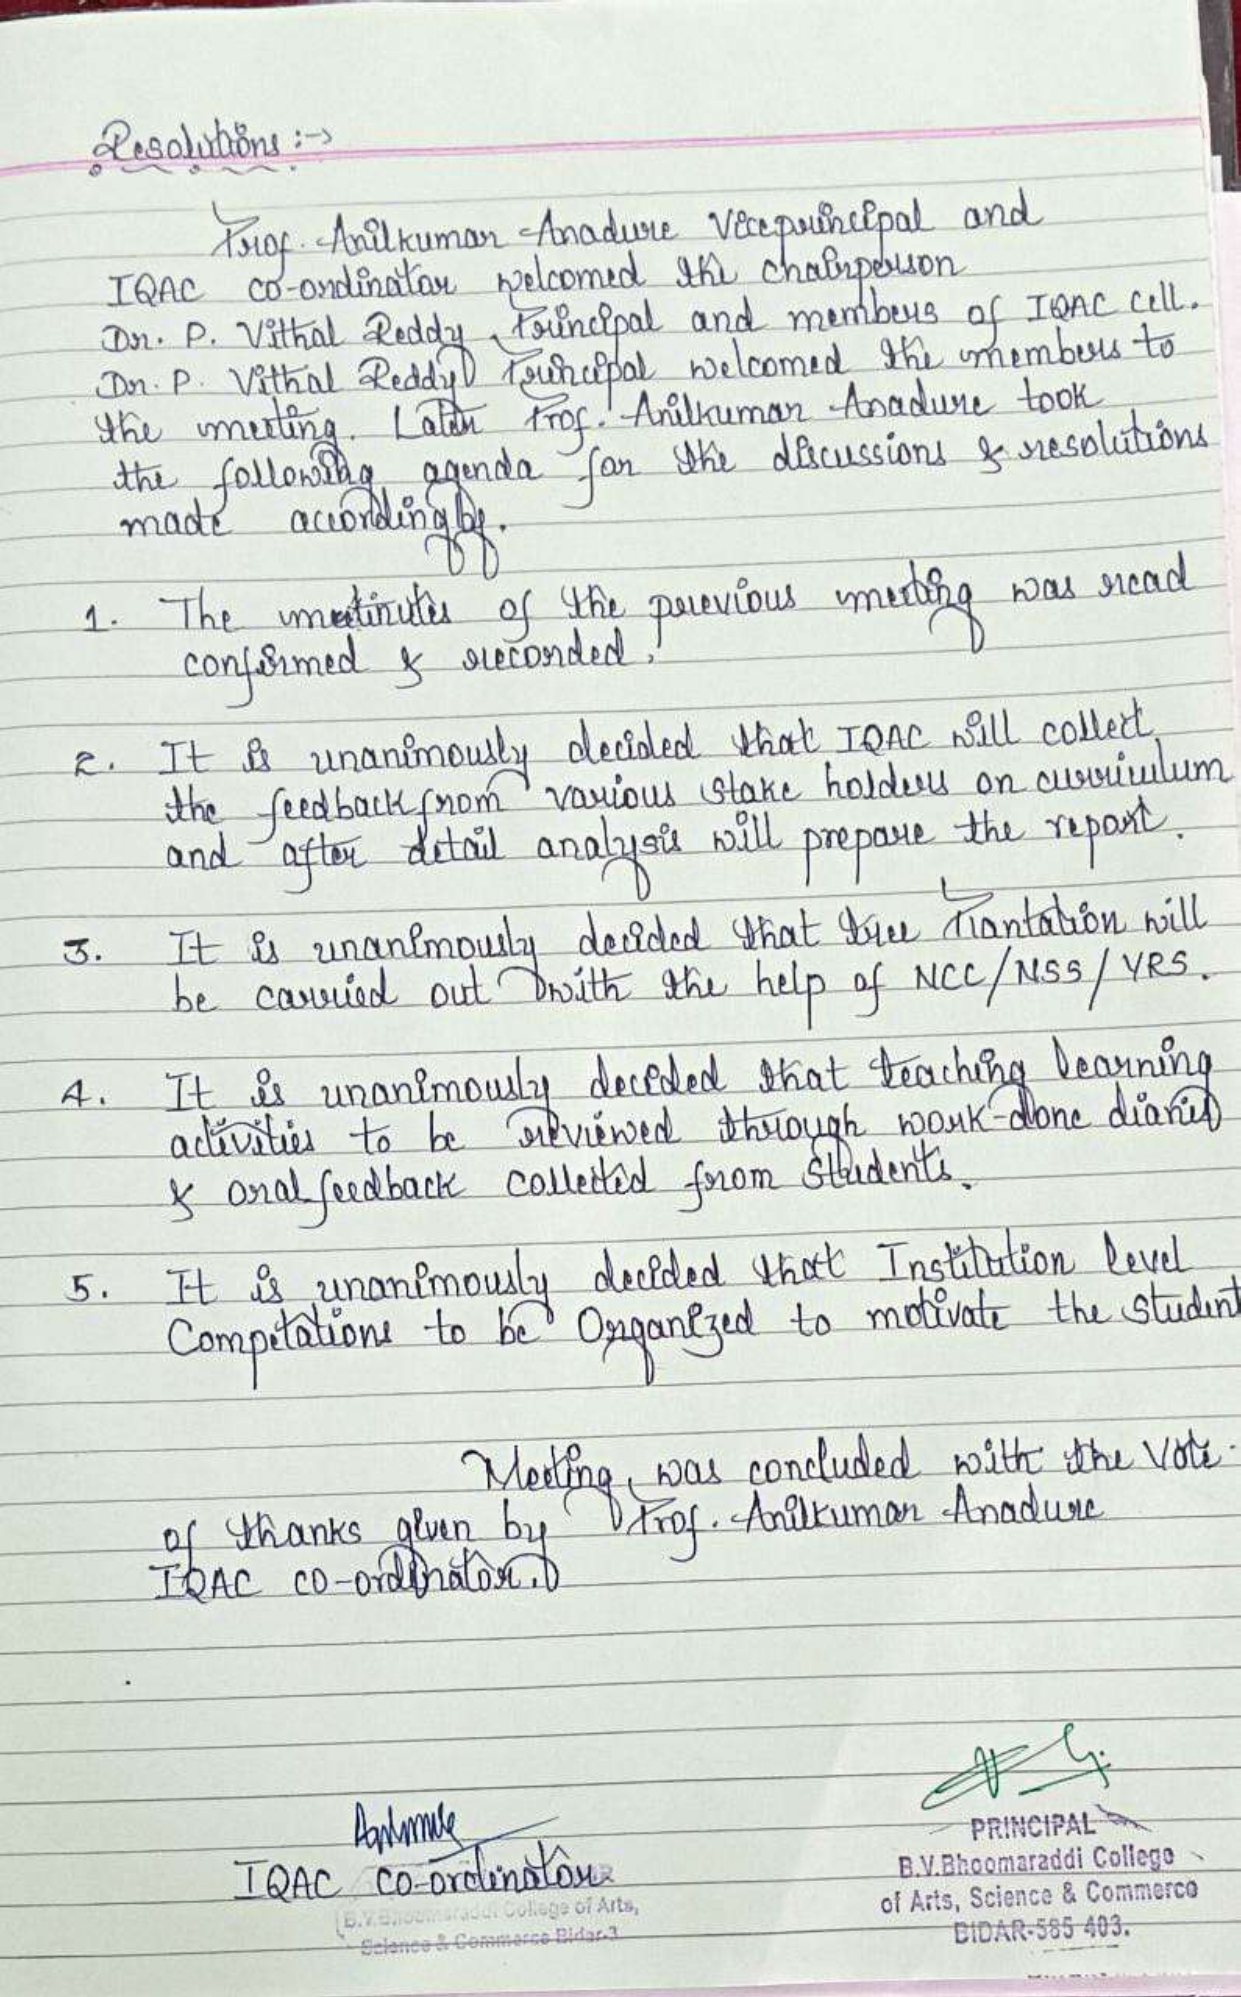 Resolutions :->
Prof. Anilkumar Anadure Viceprincipal and
IQAC co-ordinator welcomed the chairperson
Dr. P. Vithal Reddy, Principal and members of IQAC cell.
Dr. P. Vithal Reddy Principal welcomed the members to
the meeting. Later Prof. Anilkumar Anadure took
the following agenda for the discussions & resolutions
made accordingly.
1. The of the previous meeting was read
confirmed & recorded.
2. It is unanimously decided that IQAC will collect
the feedback from various stake holders on curriculum
and after detail analysis will prepare the report.
3. It is unanimously decided that tree Plantation will
be carried out with the help of NCC/NSS/YRS.
4. It is unanimously decided that teaching learning
activities to be reviewed through work-done diaries
& oral feedback collected from students.
5. It is unanimously decided that Institution level
Competations to be Organized to motivate the student
Meeting was concluded with the Vote
of thanks given by Prof. Anilkumar Anadure
IQAC co-ordinator.
IQAC co-ordinator
B.V.Bhoomaraddi College of Arts,
Science & Commerce Bidar-3
PRINCIPAL
B.V.Bhoomaraddi College
of Arts, Science & Commerce
BIDAR-585 403.